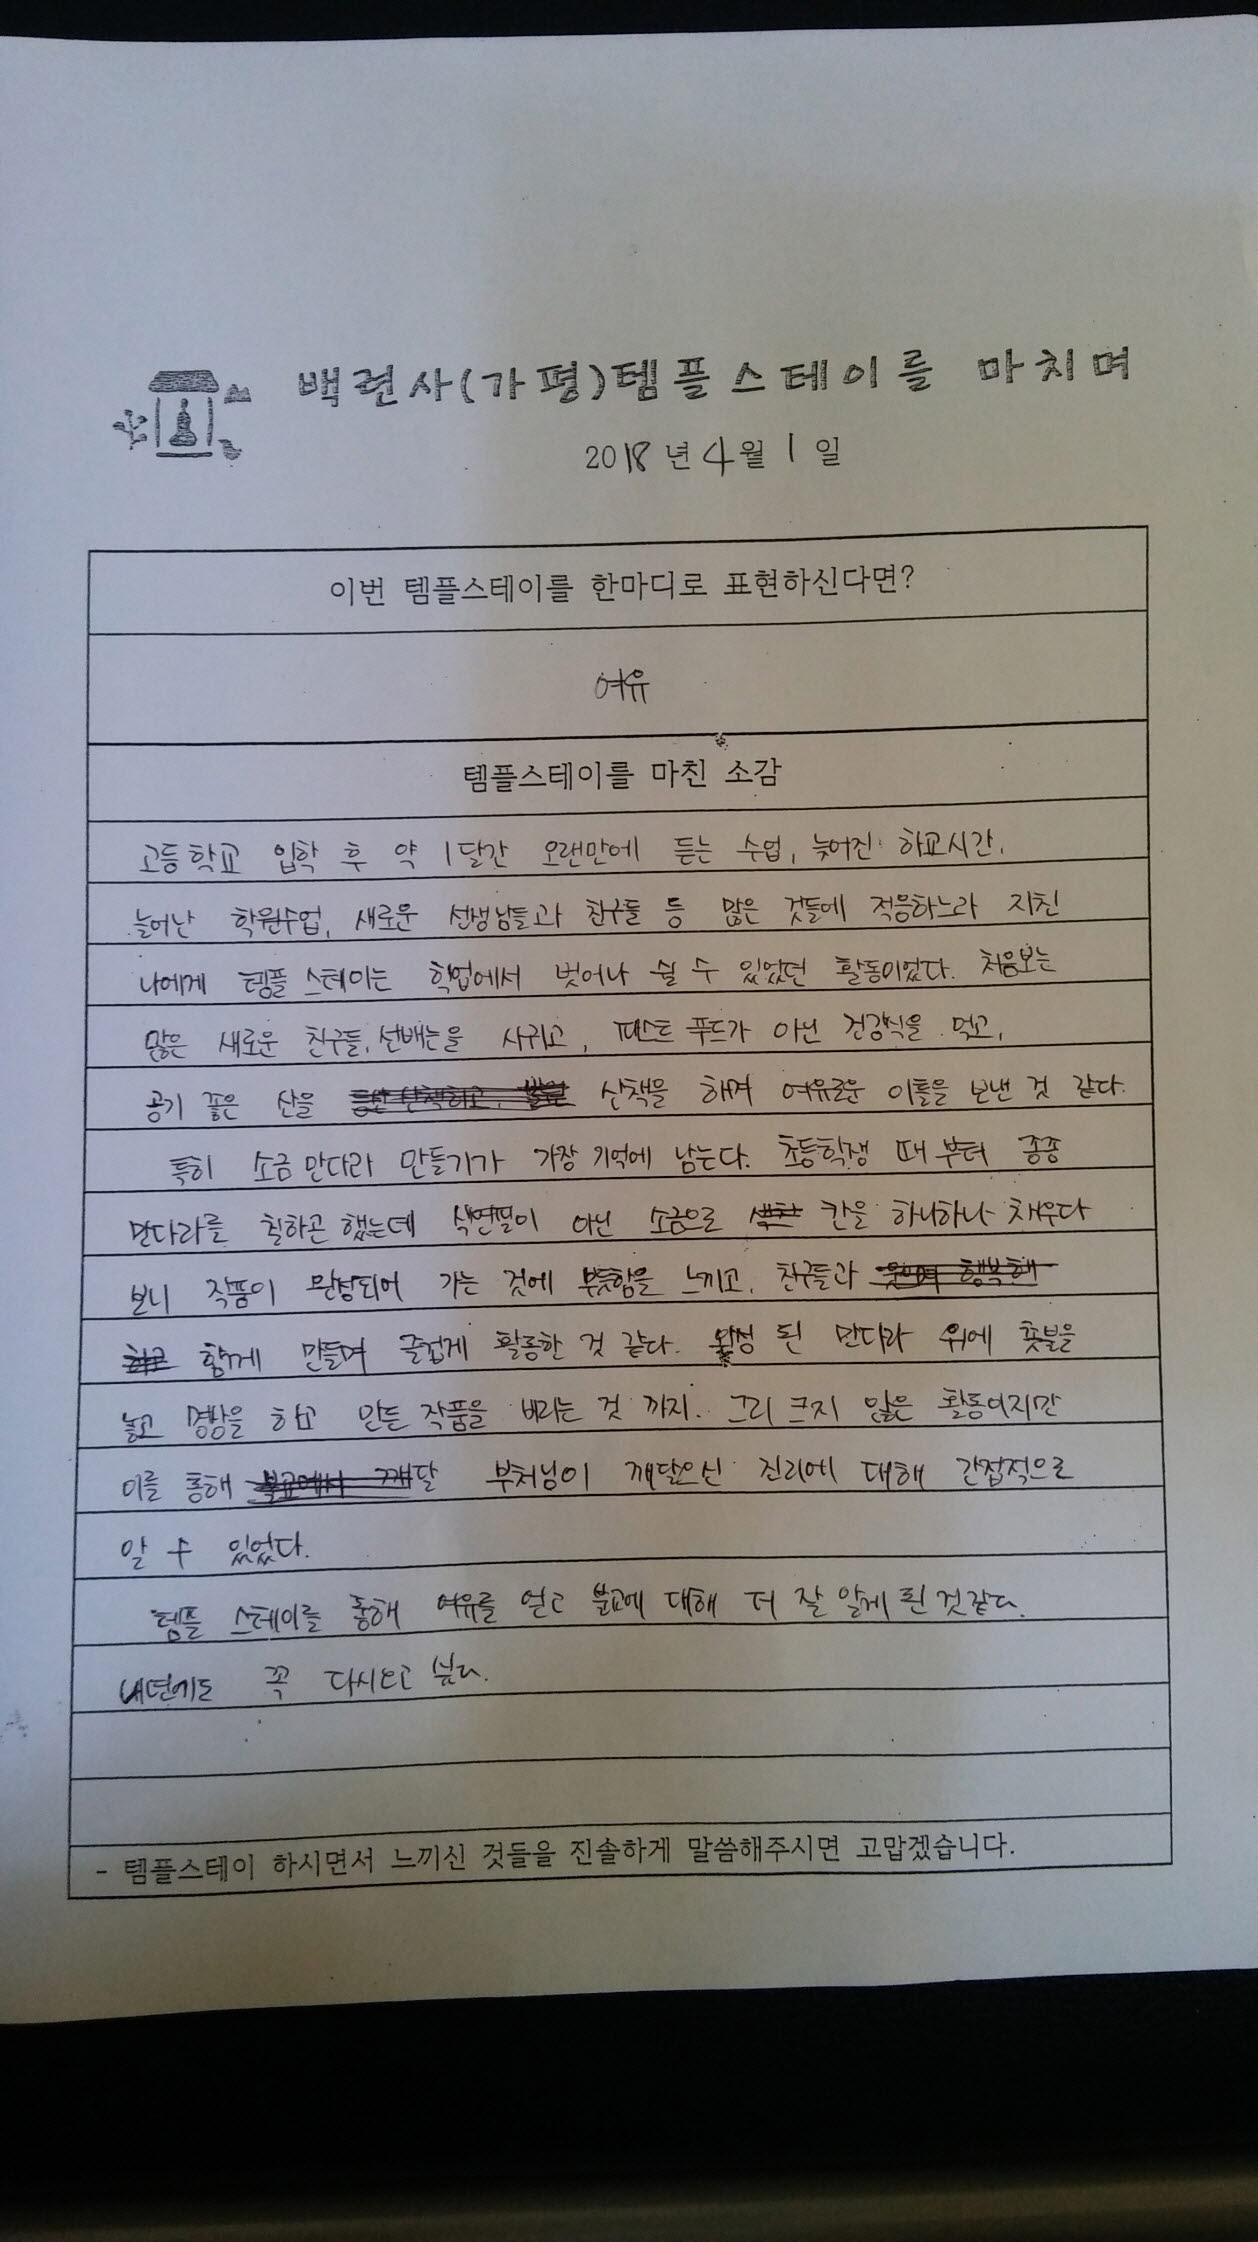 백련사(가평)템플스테이를 마치며
2018년 4월 1일
이번 템플스테이를 한마디로 표현하신다면?
여유
템플스테이를 마친 소감
고등학교 입학 후 약 1달간 오랜만에 듣는 수업, 늦어진 하교시간,
늘어난 학원수업, 새로운 선생님들과 친구들 등 많은 것들에 적응하느라 지친
나에게 템플 스테이는 학업에서 벗어나 쉴 수 있었던 활동이었다. 처음보는
많은 새로운 친구들, 사귀고, 패스트 푸드가 아닌 건강식을 먹고,
공기 좋은 산을 산책을 하며 여유로운 이틀을 보낸 것 같다.
특히 소금 만다라 만들기가 가장 기억에 남는다. 초등학생 때 부터 종종
만다라를 칠하곤 했는데 색연필이 아닌 소금으로 칸을 하나하나 채우다
보니 작품이 완성되어 가는 것에 뿌듯함을 느끼고, 친구들과
함께 만들며 즐겁게 활동한 것 같다. 완성 된 만다라 위에 촛불을
놓고 명상을 하고 만든 작품을 버리는 것 까지. 그리 크지 않은 활동이지만
이를 통해 부처님이 깨달으신 진리에 대해 간접적으로
알 수 있었다.
템플 스테이를 통해 여유를 얻고 불교에 대해 더 잘 알게 된 것같다.
내년에도 꼭 다시오고 싶다.
- 템플스테이 하시면서 느끼신 것들을 진솔하게 말씀해주시면 고맙겠습니다.